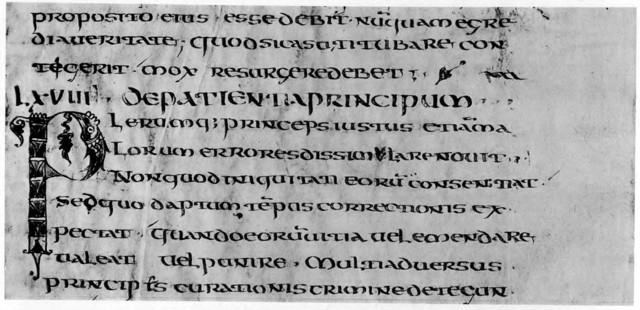 proposito eius · esse debit · nūquam egre
di a veritate; quod si casu titubare con
tegerit · mox resurgere debet;
LXVIII · de patientia principum
Plerumq; princeps iustus etiā ma
lorum errores dissimularenovit ·
Non quod iniquitati eorū consentiat ·
sed quod aptum tēpus correctionis ex
pectat · quando eorū vitia vel emendare
valeat vel punire · multi adversus
principes curationis crimine detegun